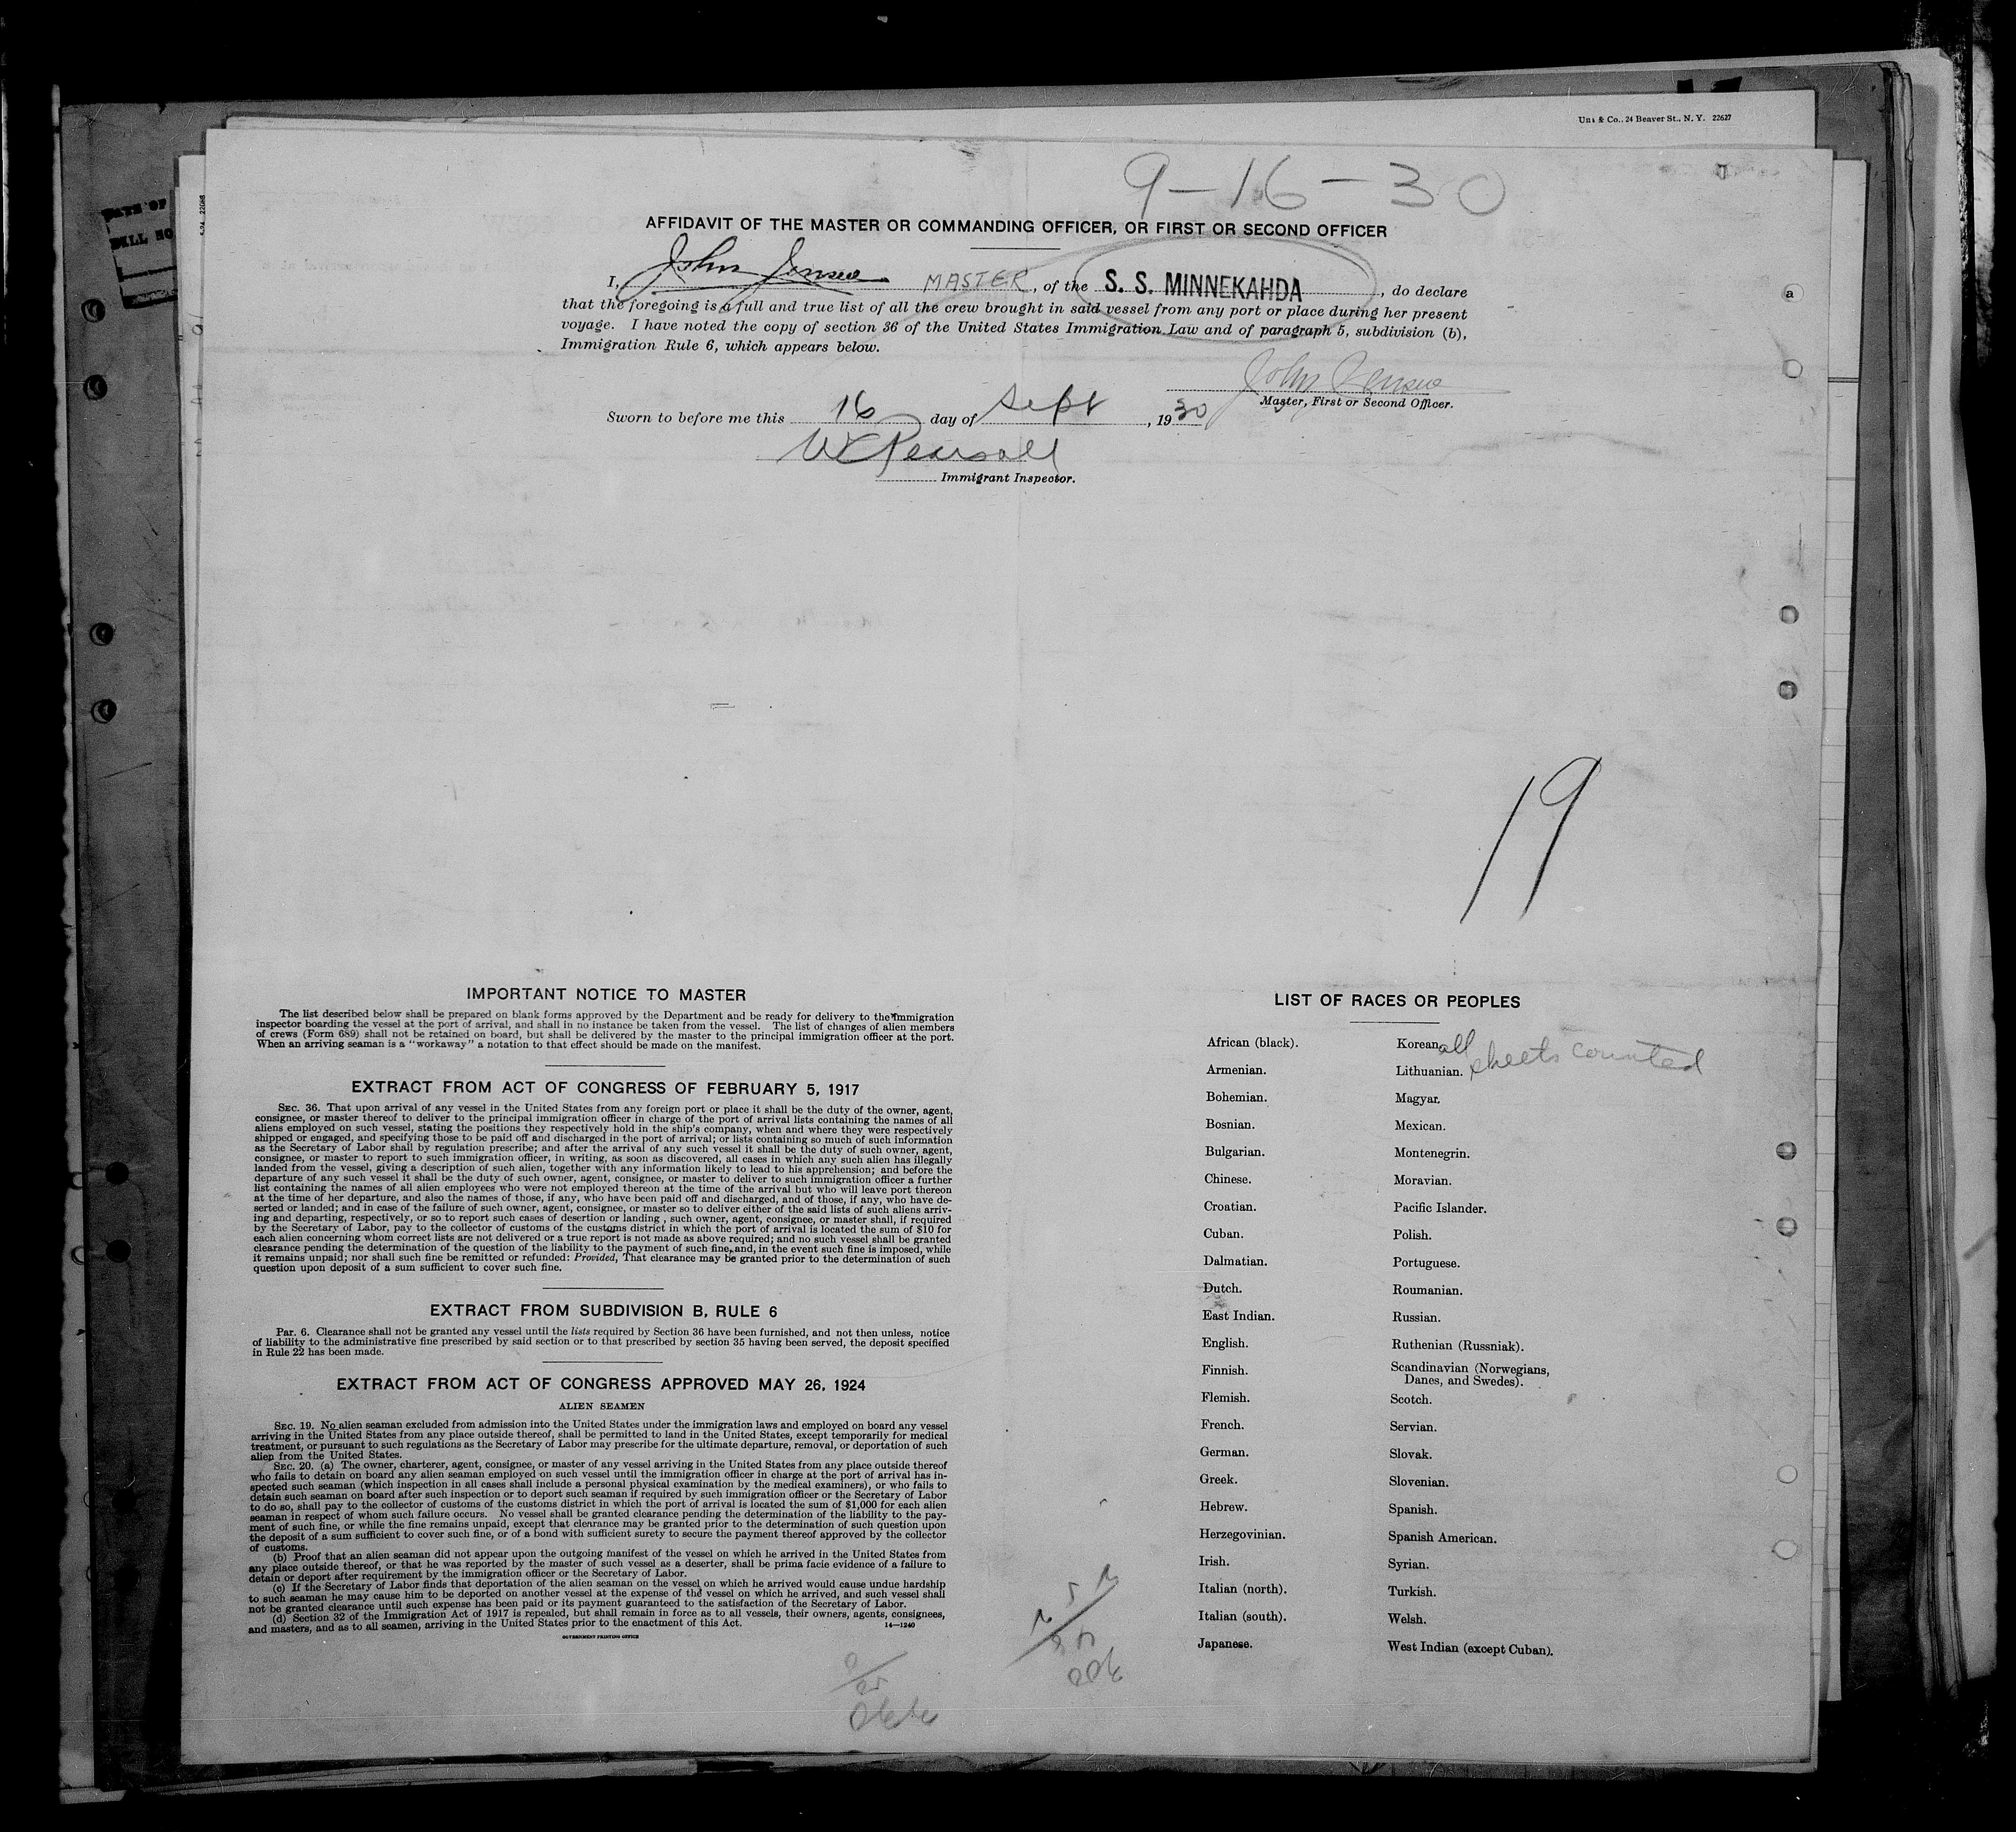 Co., 24 Beaver St., N. Y. 22627
9-16-30
DATE OF
BILL NO
AFFIDAVIT OF THE MASTER OR COMMANDING OFFICER, OR FIRST OR SECOND OFFICER
I, John Jensen MASTER, of the S. S. MINNEKAHDA, do declare
that the foregoing is a full and true list of all the crew brought in said vessel from any port or place during her present
voyage. I have noted the copy of section 36 of the United States Immigration Law and of paragraph 5, subdivision (b),
Immigration Rule 6, which appears below.
John Jensen
Master, First or Second Officer.
Sworn to before me this 16 day of Sept, 1930
Immigrant Inspector.
19
IMPORTANT NOTICE TO MASTER
The list described below shall be prepared on blank forms approved by the Department and be ready for delivery to the immigration
inspector boarding the vessel at the port of arrival, and shall in no instance be taken from the vessel. The list of changes of alien members
of crews (Form 689) shall not be retained on board, but shall be delivered by the master to the principal immigration officer at the port.
When an arriving seaman is a "workaway" a notation to that effect should be made on the manifest.
EXTRACT FROM ACT OF CONGRESS OF FEBRUARY 5, 1917
SEC. 36. That upon arrival of any vessel in the United States from any foreign port or place it shall be the duty of the owner, agent,
consignee, or master thereof to deliver to the principal immigration officer in charge of the port of arrival lists containing the names of all
aliens employed on such vessel, stating the positions they respectively hold in the ship's company, when and where they were respectively
shipped or engaged, and specifying those to be paid off and discharged in the port of arrival; or lists containing so much of such information
as the Secretary of Labor shall by regulation prescribe; and after the arrival of any such vessel it shall be the duty of such owner, agent,
consignee, or master to report to such immigration officer, in writing, as soon as discovered, all cases in which any such alien has illegally
landed from the vessel, giving a description of such alien, together with any information likely to lead to his apprehension; and before the
departure of any such vessel it shall be the duty of such owner, agent, consignee, or master to deliver to such immigration officer a further
list containing the names of all alien employees who were not employed thereon at the time of the arrival but who will leave port thereon
at the time of her departure, and also the names of those, if any, who have been paid off and discharged, and of those, if any, who have de-
serted or landed; and in case of the failure of such owner, agent, consignee, or master so to deliver either of the said lists of such aliens arriv-
ing and departing, respectively, or so to report such cases of desertion or landing , such owner, agent, consignee, or master shall, if required
by the Secretary of Labor, pay to the collector of customs of the customs district in which the port of arrival is located the sum of $10 for
each alien concerning whom correct lists are not delivered or a true report is not made as above required; and no such vessel shall be granted
clearance pending the determination of the question of the liability to the payment of such fine, and, in the event such fine is imposed, while
it remains unpaid; nor shall such fine be remitted or refunded: Provided, That clearance may be granted prior to the determination of such
question upon deposit of a sum sufficient to cover such fine.
EXTRACT FROM SUBDIVISION B, RULE 6
Par. 6. Clearance shall not be granted any vessel until the lists required by Section 36 have been furnished, and not then unless, notice
of liability to the administrative fine prescribed by said section or to that prescribed by section 35 having been served, the deposit specified
in Rule 22 has been made.
EXTRACT FROM ACT OF CONGRESS APPROVED MAY 26, 1924
ALIEN SEAMEN
SEC. 19. No alien seaman excluded from admission into the United States under the immigration laws and employed on board any vessel
arriving in the United States from any place outside thereof, shall be permitted to land in the United States, except temporarily for medical
treatment, or pursuant to such regulations as the Secretary of Labor may prescribe for the ultimate departure, removal, or deportation of such
alien from the United States.
SEC. 20. (a) The owner, charterer, agent, consignee, or master of any vessel arriving in the United States from any place outside thereof
who fails to detain on board any alien seaman employed on such vessel until the immigration officer in charge at the port of arrival has in-
spected such seaman (which inspection in all cases shall include a personal physical examination by the medical examiners), or who fails to
detain such seaman on board after such inspection or to deport such seaman if required by such immigration officer or the Secretary of Labor
to do so, shall pay to the collector of customs of the customs district in which the port of arrival is located the sum of $1,000 for each alien
seaman in respect of whom such failure occurs. No vessel shall be granted clearance pending the determination of the liability to the pay-
ment of such fine, or while the fine remains unpaid, except that clearance may be granted prior to the determination of such question upon
the deposit of a sum sufficient to cover such fine, or of a bond with sufficient surety to secure the payment thereof approved by the collector
of customs.
(b) Proof that an alien seaman did not appear upon the outgoing manifest of the vessel on which he arrived in the United States from
any place outside thereof, or that he was reported by the master of such vessel as a deserter, shall be prima facie evidence of a failure to
detain or deport after requirement by the immigration officer or the Secretary of Labor.
(c) If the Secretary of Labor finds that deportation of the alien seaman on the vessel on which he arrived would cause undue hardship
to such seaman he may cause him to be deported on another vessel at the expense of the vessel on which he arrived, and such vessel shall
not be granted clearance until such expense has been paid or its payment guaranteed to the satisfaction of the Secretary of Labor.
(d) Section 32 of the Immigration Act of 1917 is repealed, but shall remain in force as to all vessels, their owners, agents, consignees,
and masters, and as to all seamen, arriving in the United States prior to the enactment of this Act. 14—1240
GOVERNMENT PRINTING OFFICE
LIST OF RACES OR PEOPLES
African (black). Korean.
all sheets counted
Armenian. Lithuanian.
Bohemian. Magyar.
Bosnian. Mexican.
Bulgarian. Montenegrin.
Chinese. Moravian.
Croatian. Pacific Islander.
Cuban. Polish.
Dalmatian. Portuguese.
Dutch. Roumanian.
East Indian. Russian.
English. Ruthenian (Russniak).
Finnish. Scandinavian (Norwegians,
Danes, and Swedes).
Flemish. Scotch.
French. Servian.
German. Slovak.
Greek. Slovenian.
Hebrew. Spanish.
Herzegovinian. Spanish American.
Irish. Syrian.
Italian (north). Turkish.
Italian (south). Welsh.
Japanese. West Indian (except Cuban).